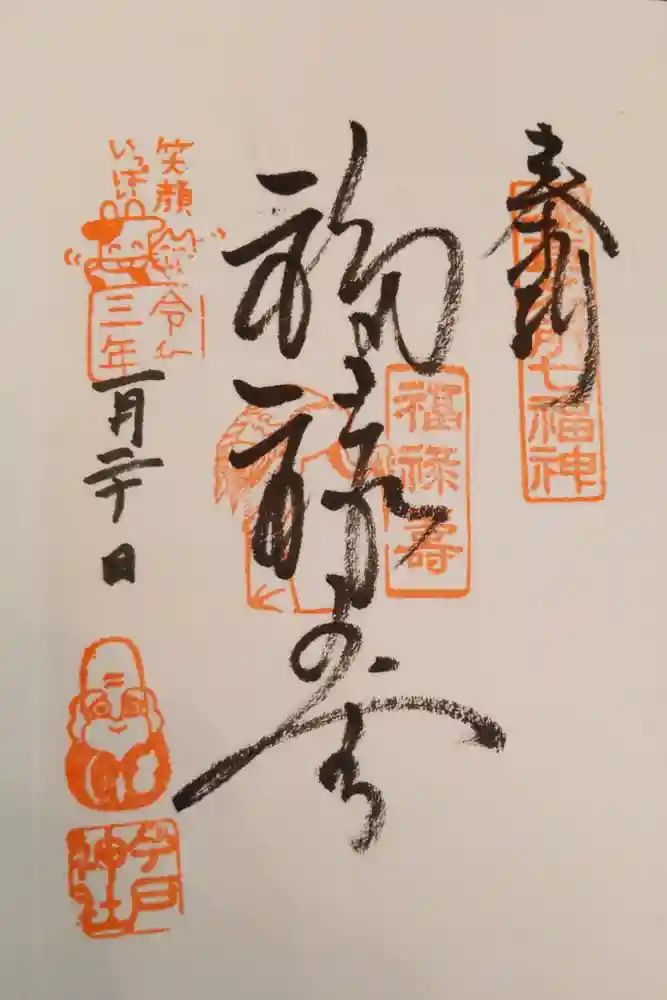 奉拝
七福神
福禄寿
福禄壽
笑顔
いっぱい
令和
三年
一月二十日
今戸
神社